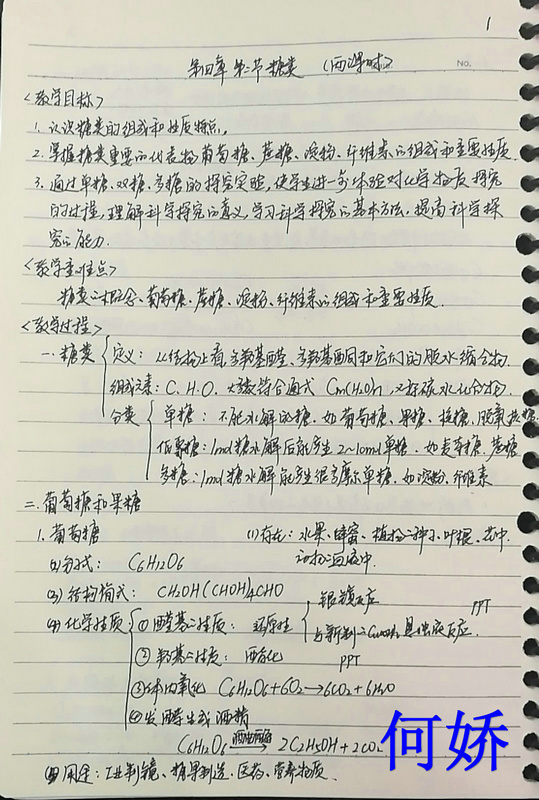 1
第四章 第二节 糖类 （两课时）
No.
<教学目标>
1. 认识糖类的组成和性质特点。
2. 掌握糖类重要的代表物葡萄糖、蔗糖、淀粉、纤维素的组成和重要性质.
3. 通过单糖、双糖、多糖的探究实验，使学生进一步体验对化学物质探究
的过程，理解科学探究的意义，学习科学探究的基本方法，提高科学探
究的能力.
<教学重难点>
糖类的概念、葡萄糖、蔗糖、淀粉、纤维素的组成和重要性质.
<教学过程>
一. 糖类
定义： 从结构上看，多羟基醛、多羟基酮和它们的脱水缩合物.
组成元素：C. H. O. 大多符合通式 Cm(H2O)n ，又称碳水化合物.
分类
单糖： 不能水解的糖. 如葡萄糖、果糖、核糖、脱氧核糖
低聚糖：1mol糖水解后能产生2~10mol单糖. 如麦芽糖. 蔗糖
多糖：1mol糖水解能产生很多摩尔单糖. 如淀粉. 纤维素
二. 葡萄糖和果糖
1. 葡萄糖 (1)存在：水果、蜂蜜、植物的种子、叶、根、花中.
动物的血液中.
(2)分子式： C6H12O6
(3) 结构简式： CH2OH(CHOH)4CHO
(4) 化学性质
① 醛基的性质： 还原性
银镜反应
与新制的Cu(OH)2悬浊液反应.
PPT
② 羟基的性质： 酯化 PPT
③ 体内氧化 C6H12O6+6O2→6CO2+6H2O
④ 发酵生成酒精
C6H12O6 酒化酶→ 2C2H5OH+2CO2
用途：工业制镜、糖果制造、医药、营养物质.
何娇